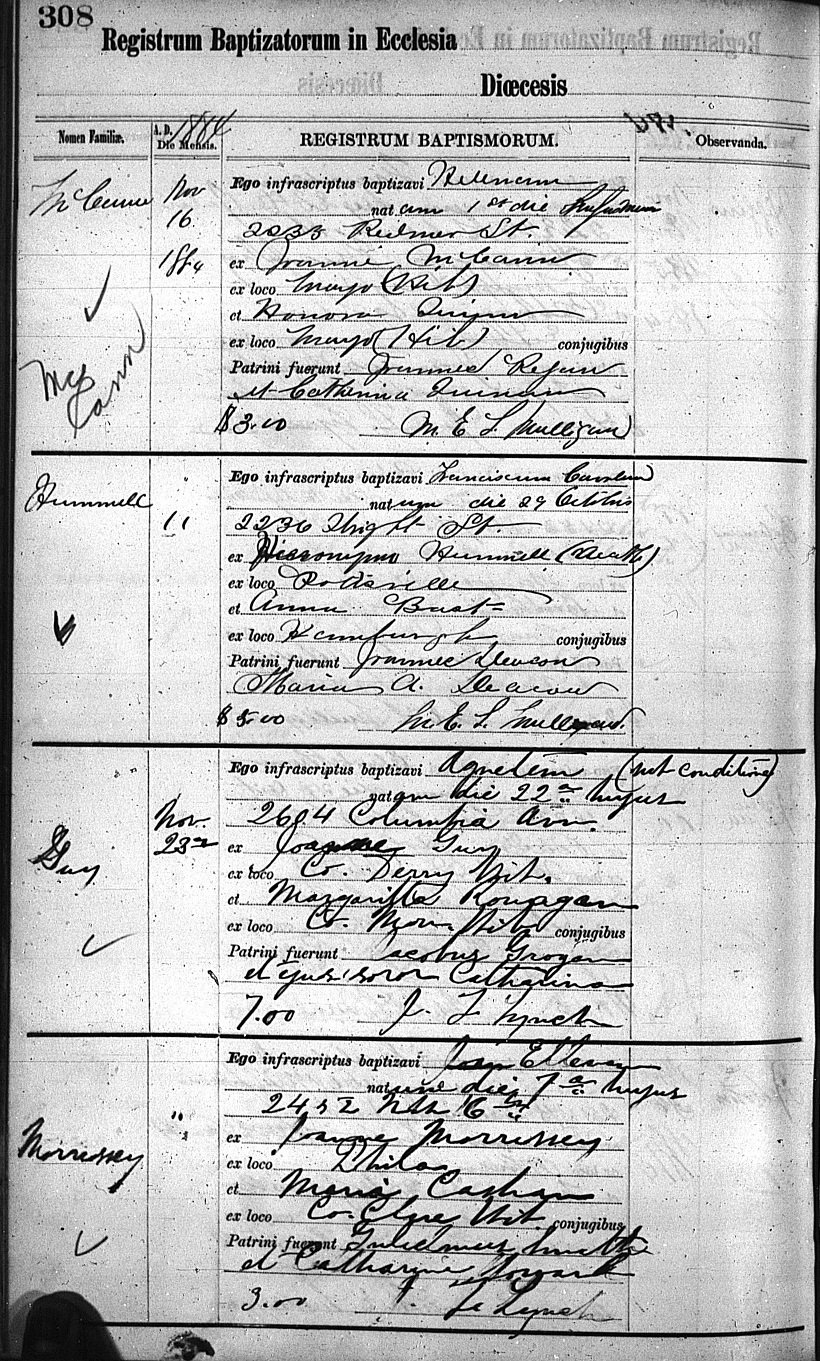 308
Registrum Baptizatorum in Ecclesia
Diœcesis
Nomen Familiæ.
A. D. 1884
Die Mensis.
REGISTRUM BAPTISMORUM.
Observanda.
McCann
Nov
16
1884
Mc
Cann
Ego infrascriptus baptizavi Helenam
natam 1st die
2233 Redner St.
ex Joanne McCann
ex loco Mayo (Hib)
et Honora
ex loco Mayo (Hib) conjugibus
Patrini fuerunt Joannes Regan
et Catherina
$3.00 M. E. L. Mulligan
Hummell
"
11
Ego infrascriptus baptizavi Franciscum
natum die 29 Octobris
2236 St.
ex Hieronymo Hummell
ex loco Pottsville
et Anna Bast
ex loco Hamburgh conjugibus
Patrini fuerunt Joannes Deacon
Maria A. Deacon
$5.00 M. E. L. Mulligan
Guy
Nov.
23rd
Ego infrascriptus baptizavi Agnetem
natam die 22a hujus
2604 Columbia Ave.
ex Joanne Guy
ex loco Co. Derry Hib.
et Margaritta
ex loco Co. Hib. conjugibus
Patrini fuerunt Jacobus Grogan
et ejus soror Catharina
7.00 J. F. Lynch
Morrissey
"
Ego infrascriptus baptizavi
nat die 7a hujus
2452 Nth 6th
ex Joanne Morrissey
ex loco Phila
et Maria
ex loco Co. Clare Hib. conjugibus
Patrini fuerunt Gulielmus
et Catharine Howard
3.00 J. F. Lynch